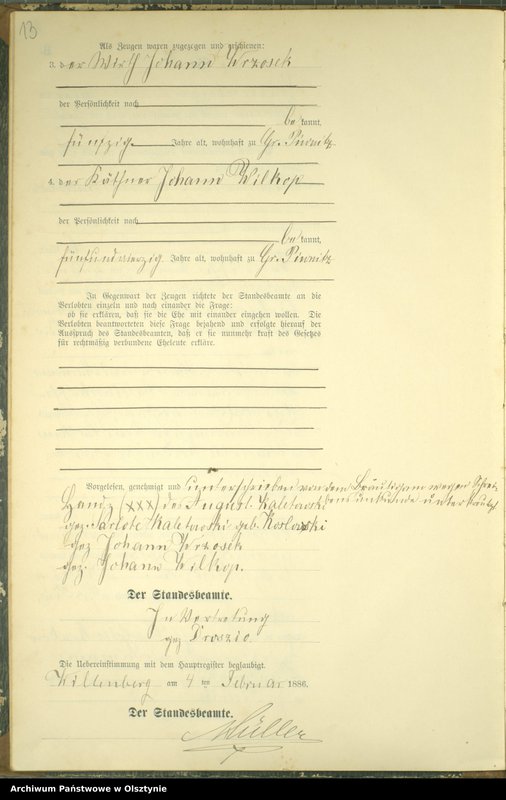 13
Als Zeugen waren zugezogen und erschienen:
3. der Wirth Johann Wrzosek
der Persönlichkeit nach
be kannt,
fünfzig Jahre alt, wohnhaft zu Gr. Piwnitz
4. der Käthner Johann Wilkop
der Persönlichkeit nach
be kannt,
fünfundvierzig Jahre alt, wohnhaft zu Gr. Piwnitz
In Gegenwart der Zeugen richtete der Standesbeamte an die
Verlobten einzeln und nach einander die Frage:
ob sie erklären, daß sie die Ehe mit einander eingehen wollen. Die
Verlobten beantworteten diese Frage bejahend und erfolgte hierauf der
Ausspruch des Standesbeamten, daß er sie nunmehr kraft des Gesetzes
für rechtmäßig verbundene Eheleute erkläre.
Vorgelesen, genehmigt und unterschrieben von dem Bräutigam wegen Schrei-
bensunkunde unterkreuzt
Handz (XXX) des August Kaletowski
gez. Karlote Kaletowski geb. Koslowski
gez Johann Wrzosek
gez. Johann Wilkop.
Der Standesbeamte.
In Vertretung
gez Droszio
Die Uebereinstimmung mit dem Hauptregister beglaubigt.
Willenberg am 4 ten Februar 1886.
Der Standesbeamte.
Müller
Archiwum Państwowe w Olsztynie